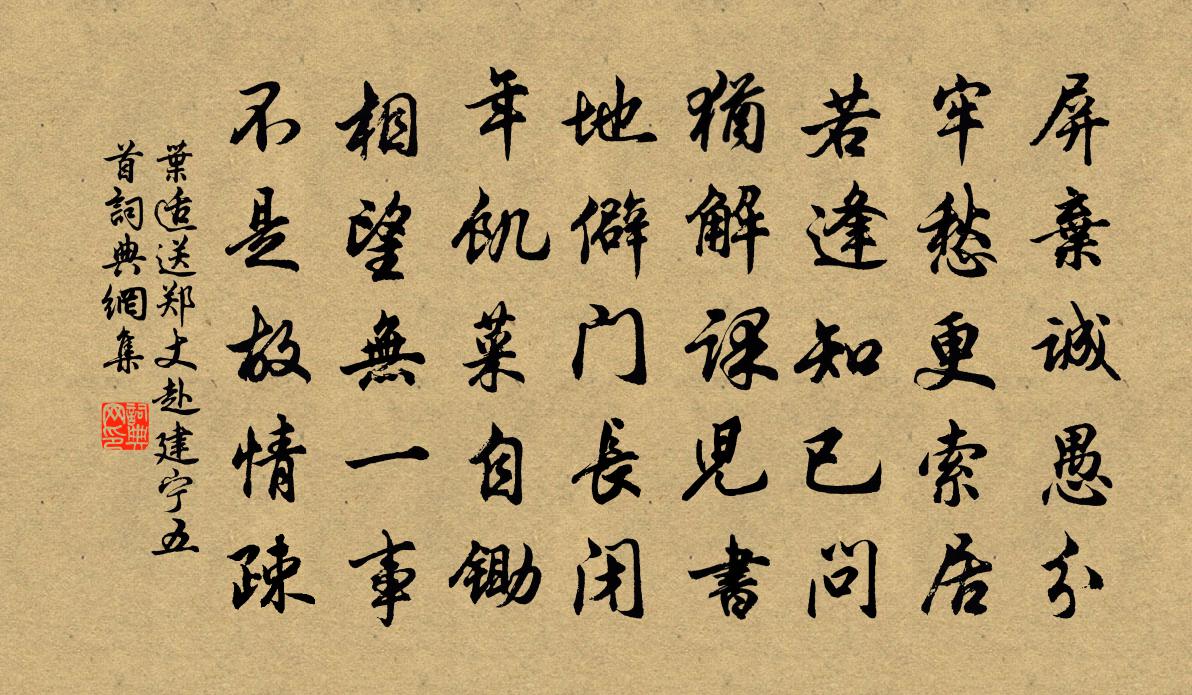 屏棄誠愚分
牢愁更索居
若逢知已問
猶解課兒書
地僻门長闭
年飢菜自鋤
相望無一事
不是故情疎
葉适送郑丈赴建宁五
首詞典網集
詞典网印